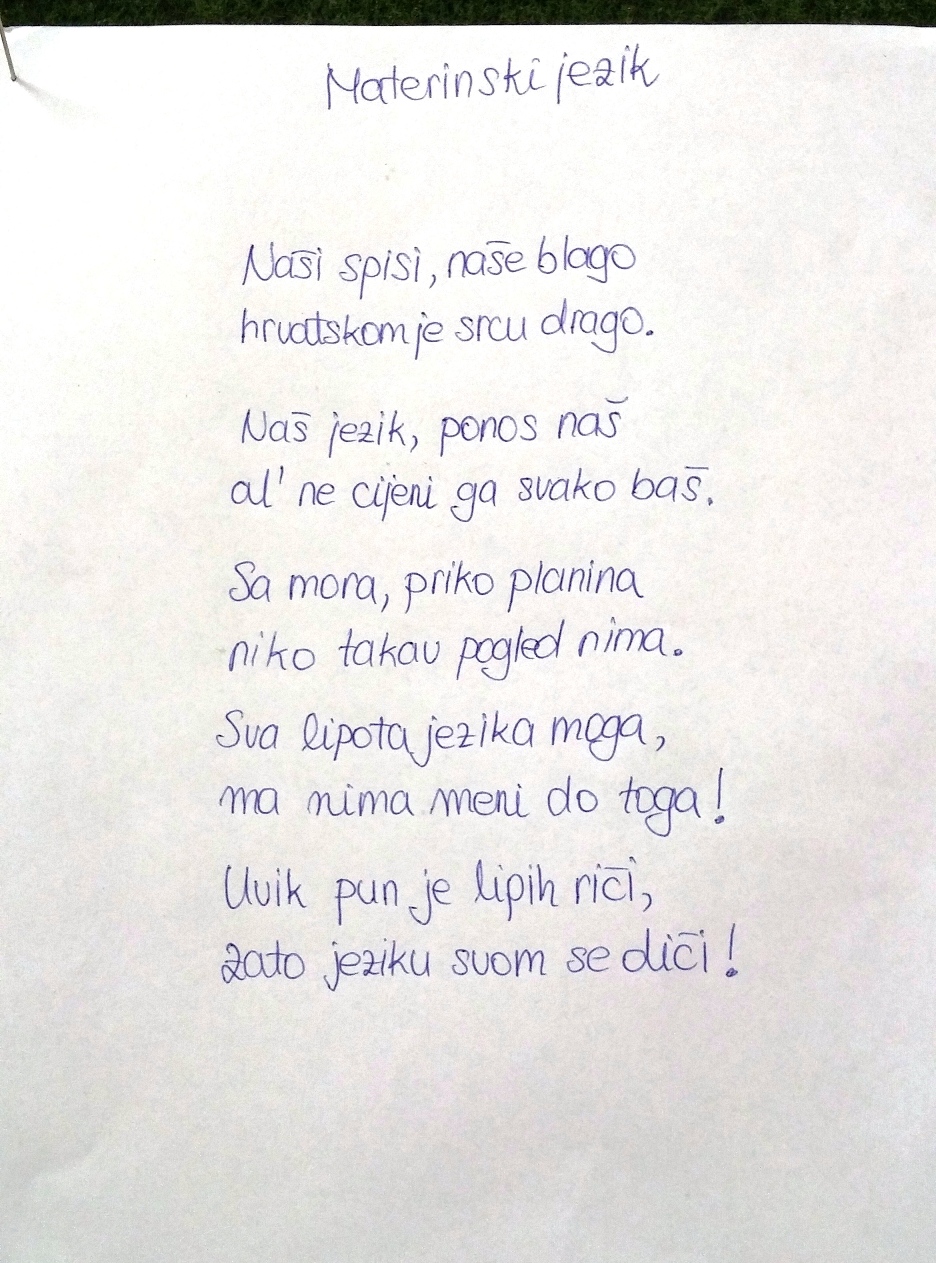 Materinski jezik
Naši spisi, naše blago
hrvatskom je srcu drago.
Naš jezik, ponos naš
al' ne cijeni ga svako baš.
Sa mora, priko planina
niko takav pogled nima.
Sva lipota jezika moga,
ma nima meni do toga!
Uvik pun je lipih riči,
zato jeziku svom se diči!